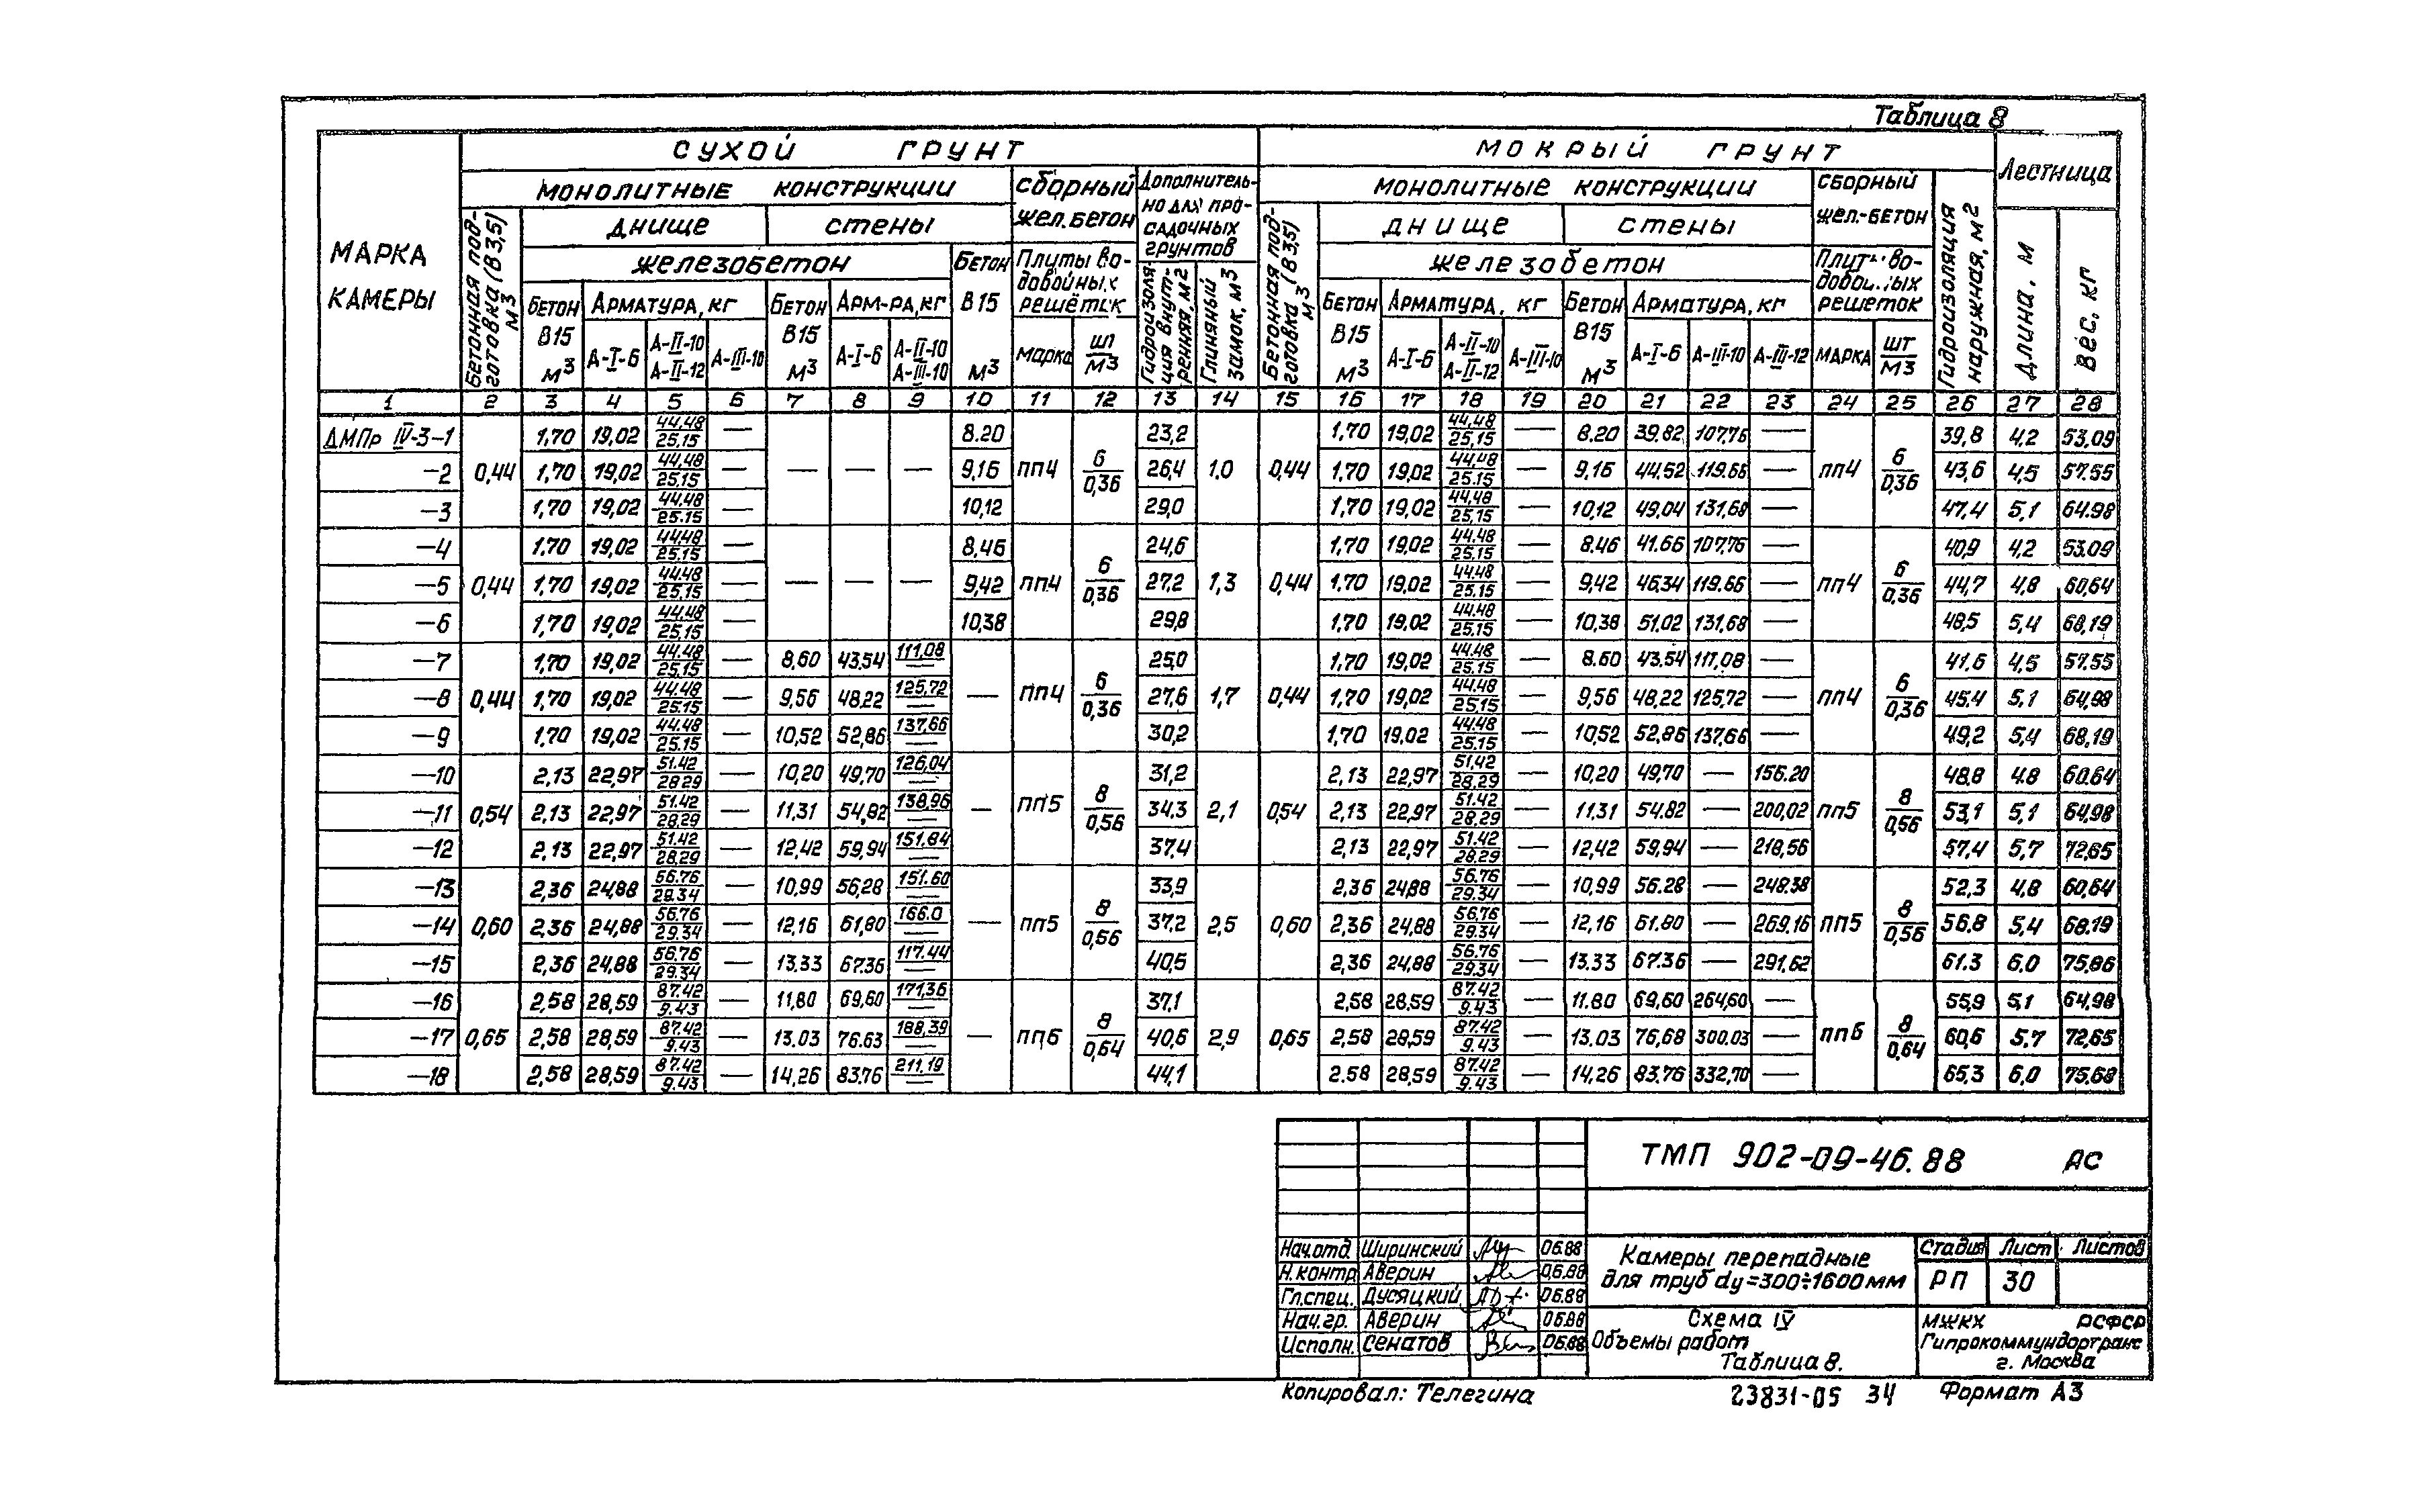 Таблица 8
МАРКА КАМЕРЫ
СУХОЙ ГРУНТ
МОКРЫЙ ГРУНТ
Лестница
МОНОЛИТНЫЕ КОНСТРУКЦИИ
СБОРНЫЙ ЖЕЛ.БЕТОН
ДОПОЛНИТЕЛЬ-
НО ДЛЯ ПРО-
САДОЧНЫХ
ГРУНТОВ
МОНОЛИТНЫЕ КОНСТРУКЦИИ
СБОРНЫЙ ЖЕЛ.-БЕТОН
Бетонная под-
готовка (В3,5)
м3
днище
стены
железобетон
Бетон В15 м3
Плиты во-
добойных
решеток
Гидроизоля
ция внут-
ренняя, м2
Глиняный
замок, м3
Бетонная под-
готовка (В3,5)
м3
днище
стены
железобетон
Плиты во-
добойных
решеток
Гидроизоляция
наружная, м2
Длина, м
Вес, кг
Бетон В15 м3
Арматура, кг
Бетон В15 м3
Арм-ра, кг
Бетон В15 м3
Арматура, кг
Бетон В15 м3
Арматура, кг
А-I-6 А-II-10 А-II-12 А-III-10
А-I-6 А-II-10 А-III-10
марка шт м3
А-I-6 А-II-10 А-II-12 А-III-10
А-I-6 А-III-10 А-III-12
МАРКА ШТ М3
1 2 3 4 5 6 7 8 9 10 11 12 13 14 15 16 17 18 19 20 21 22 23 24 25 26 27 28
ДМПр IV-3-1 1,70 19,02 44,48/25,15 — 8.20 23,2 1,70 19,02 44,48/25,15 — 8.20 39.82 107,76 — 39,8 4,2 53,09
-2 0,44 1,70 19,02 44,48/25.15 — — — — 9,16 пп4 6/0,36 26,4 1.0 0,44 1,70 19,02 44,48/25.15 — 9,16 44,52 119.66 — пп4 6/0,36 43,6 4,5 57.55
-3 1,70 19,02 44.48/25.15 — 10,12 29,0 1,70 19,02 44,48/25,15 — 10,12 49,04 131,68 — 47,4 5,1 64.98
-4 1,70 19,02 44,48/25.15 — 8,46 24,6 1,70 19,02 44.48/25,15 — 8.46 41.66 107,76 — 40,9 4,2 53.09
-5 0,44 1,70 19,02 44.48/25,15 — — — — 9,42 пп4 6/0,36 27,2 1,3 0,44 1,70 19,02 44,48/25,15 — 9,42 46,34 119.66 — пп4 6/0,36 44,7 4,8 60,64
-6 1,70 19,02 44,48/25,15 — 10,38 29,8 1,70 19,02 44.48/25,15 — 10,38 51,02 131,68 — 48,5 5,4 68,19
-7 1,70 19,02 44.48/25,15 — 8,60 43,54 111,08/— 25,0 1,70 19,02 44.48/25.15 — 8.60 43,54 111,08 — 41,6 4,5 57.55
-8 0,44 1,70 19,02 44,48/25,15 — 9,56 48,22 125,72/— — пп4 6/0,36 27,6 1,7 0,44 1,70 19,02 44,48/25,15 — 9,56 48,22 125,72 — пп4 6/0,36 45.4 5,1 64,98
-9 1,70 19,02 44.48/25.15 — 10,52 52,86 137,66/— 30,2 1,70 19,02 44.48/25.15 — 10,52 52,86 137,66 — 49,2 5,4 68,19
-10 2,13 22,97 51.42/28.29 — 10,20 49,70 126,04/— 31,2 2,13 22,97 51,42/28.29 — 10,20 49,70 — 156.20 48,8 4.8 60.64
-11 0,54 2,13 22,97 51.42/28,29 — 11,31 54,82 138,96/— — пп5 8/0,56 34,3 2,1 0,54 2,13 22,97 51.42/28.29 — 11,31 54.82 — 200,02 пп5 8/0,56 53,1 5,1 64,98
-12 2,13 22,97 51.42/28.29 — 12,42 59,94 151.84/— 37,4 2,13 22,97 51.42/28.29 — 12,42 59,94 — 218,56 57,4 5,7 72,65
-13 2,36 24,88 56.76/29.34 — 10,99 56,28 151.60/— 33,9 2,36 24,88 56.76/29.34 — 10,99 56.28 — 248.38 52,3 4,8 60,64
-14 0,60 2,36 24,88 56.76/29.34 — 12,16 61,80 166.0/— — пп5 8/0,56 37,2 2,5 0,60 2,36 24,88 56.76/29.34 — 12,16 61.80 — 269.16 пп5 8/0,56 56.8 5,4 68.19
-15 2,36 24,88 56.76/29.34 — 13.33 67.36 117.44/— 40,5 2,36 24,88 56.76/29.34 — 13.33 67.36 — 291,62 61.3 6.0 75,86
-16 2,58 28,59 87.42/9.43 — 11,80 69,60 171,36/— 37,1 2,58 28,59 87.42/9.43 — 11.80 69,60 264,60 — 55,9 5,1 64,98
-17 0,65 2,58 28,59 87.42/9.43 — 13.03 76.63 188,39/— — пп6 8/0,64 40,6 2,9 0,65 2,58 28,59 87.42/9.43 — 13.03 76,68 300.03 — пп6 8/0,64 60,6 5.7 72,65
-18 2,58 28,59 87.42/9.43 — 14,26 83,76 211,19/— 44,1 2.58 28,59 87.42/9.43 — 14,26 83,76 332,70 — 65,3 6,0 75,68
ТМП 902-09-46.88 АС
Нач.отд. Ширинский 06.88
Н.контр Аверин 06.88
Гл.спец. Дусяцкий 06.88
Нач.гр. Аверин 06.88
Исполн. Сенатов 06.88
Камеры перепадные
для труб dу=300÷1600мм
Стадия Лист Листов
РП 30
Схема IV
Объемы работ
Таблица 8.
МЖКХ РСФСР
Гипрокоммундортранс
г. Москва
Копировал: Телегина
23831-05 34
Формат А3